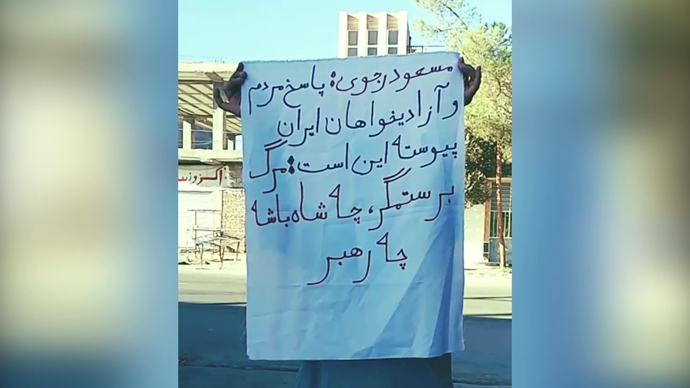 مسعود رجوی: پاسخ مردم
و آزادیخواهان ایران
پیوسته این است: مرگ
بر ستمگر، چه شاه باشه
چه رهبر